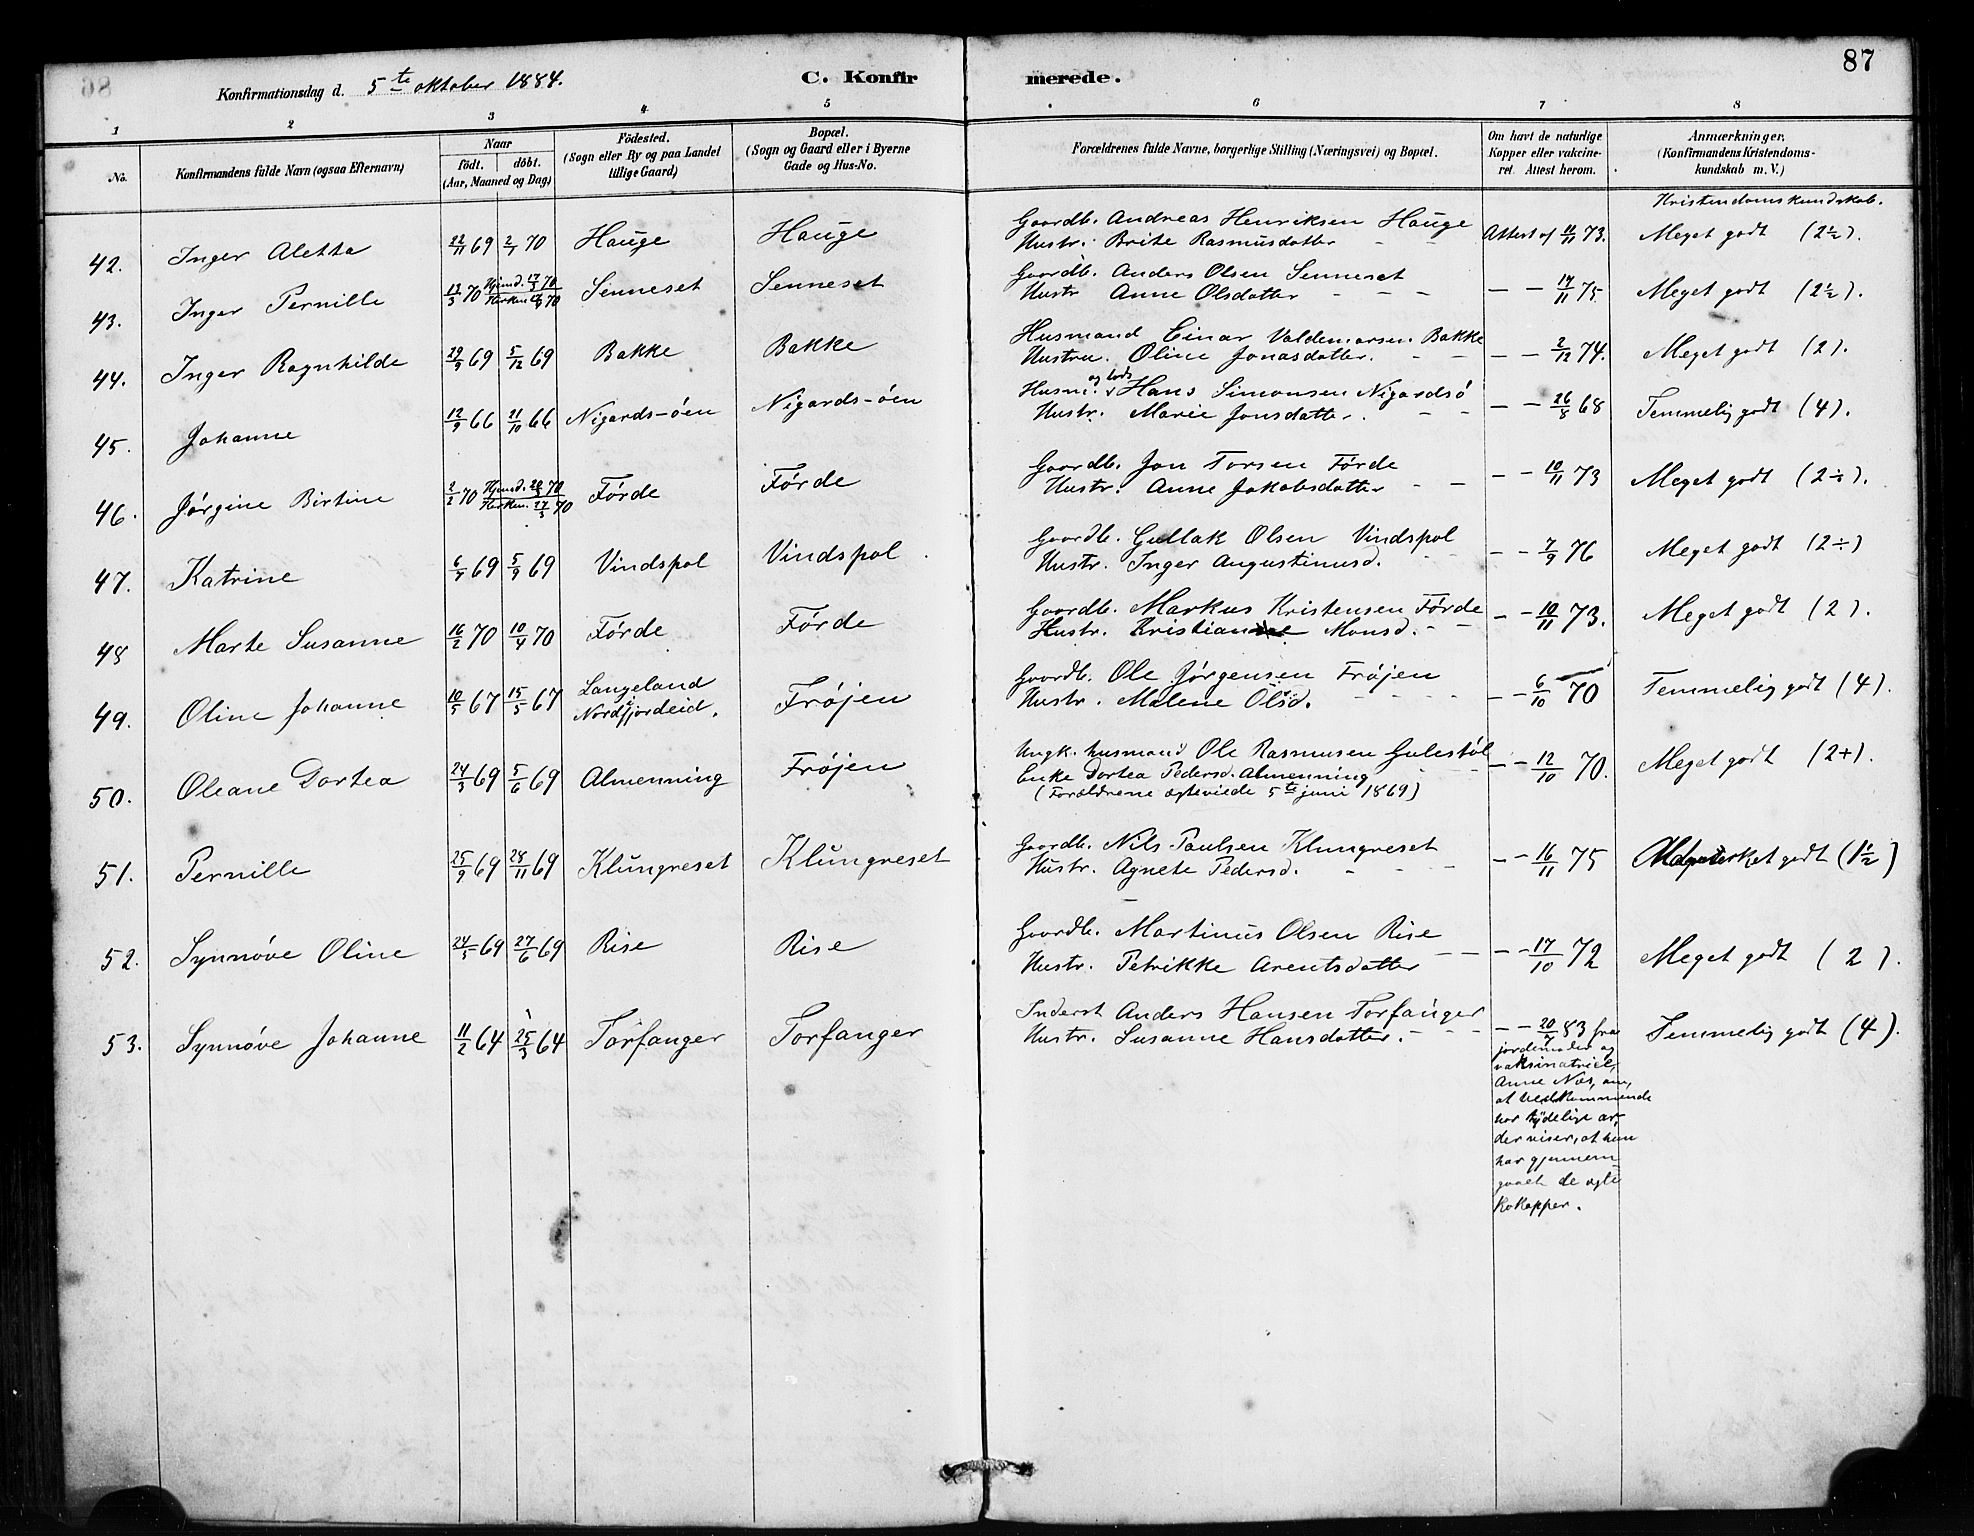 87
Konfirmationsdag d. 5te oktober 1884. C. Konfirmerede.
1 2 3 4 5 6 7 8
No. Konfirmandens fulde Navn (ogsaa Efternavn) Naar født. døbt. (Aar, Maaned og Dag) Födested. (Sogn eller By og paa Landet tillige Gaard) Bopæl. (Sogn og Gaard eller i Byerne Gade og Hus-No. Forældrenes fulde Navne, borgerlige Stilling (Næringsvei) og Bopæl. Om havt de naturlige Kopper eller vakcineret. Attest herom. Anmærkninger. (Konfirmandens Kristendomskundskab m. V.)
Kristendomskundskab.
42. Inger Aletta 22/11 69 2/1 70 Hauge Hauge Gaardb. Andreas Henriksen Hauge Attest af 11/11 73. Meget godt (2½).
Hustr. Brite Rasmusdatter - -
43. Inger Pernille 13/3 70 Hjemd. 17/3 70 Senneset Senneset Gaardb. Anders Olsen Senneset - - 17/11 75 Meget godt (2½).
Kirken 70 Hustr Anne Olsdatter - - -
44. Inger Ragnhilde 29/9 69 5/12 69 Bakke Bakke Husmand Einar Valdemarsen Bakke - - 2/12 74. Meget godt (2).
Hustru. Oline Jonasdatter. - -
45. Johanne 12/9 66 21/10 66 Nigards-øen Nigards-øen Husm. og lods Hans Simonsen Nigardsø - - 26/8 68 Temmelig godt (4).
Hustr. Marie Jonsdatter. - -
46. Jørgine Birtine 2/2 70 Hjemd. 70 Førde Førde Gaardb. Jon Torsen Førde - - 10/11 73 Meget godt (2÷).
Kirken. 27/3 70 Hustr. Anne Jakobsdatter - -
47. Katrine 6/7 69 5/9 69 Vindspol Vindspol. Gaardb. Gullak Olsen Vindspol - - 7/9 76 Meget godt (2÷)
Hustr. Inger Augustinusd.
48 Marte Susanne 16/2 70 10/4 70 Førde Førde Gaardb. Markus Kristensen Førde - - 10/11 73. Meget godt (2).
Hustr. Kristianne Monsd. - -
49. Oline Johanne 10/5 67 15/5 67 Langeland i Nordfjordeid. Frøjen Gaardb. Ole Jørgensen Frøjen - - 6/10 70 Temmelig godt (4).
Hustr. Malene Olsd. - - - -
50. Oleane Dortea 24/3 69 5/6 69 Almenning Frøjen Ungk. husmand Ole Rasmusen Gulestøl - - 12/10 70. Meget godt (2+).
Enke Dortea Pedersd. Almenning
(Forældrene egteviede 5te juni 1869)
51. Pernille 25/9 69 28/11 69 Klungreset Klungreset Gaardb. Nils Paulsen Klungreset - - 16/11 75 godt (1½)
Hustr. Agnete Pedersd. - - -
52. Synnøve Oline 24/5 69 27/6 69 Rise Rise Gaardb. Martinus Olsen Rise - - 17/10 72 Meget godt (2).
Hustr. Petrikke Arentsdatter - -
53. Synnøve Johanne 11/2 64 25/3 64 Torfanger Torfanger Inderst Anders Hansen Torfanger - - 20/7 83 fra Temmelig godt (4).
Hustr. Susanne Hansdatter. - - -
jordemoder og
vaksinatrice,
Anne Næs, om,
at vedkommende
har tydelige ar,
der viser, at hun
har gjennem
gaaet de egte
kokopper.